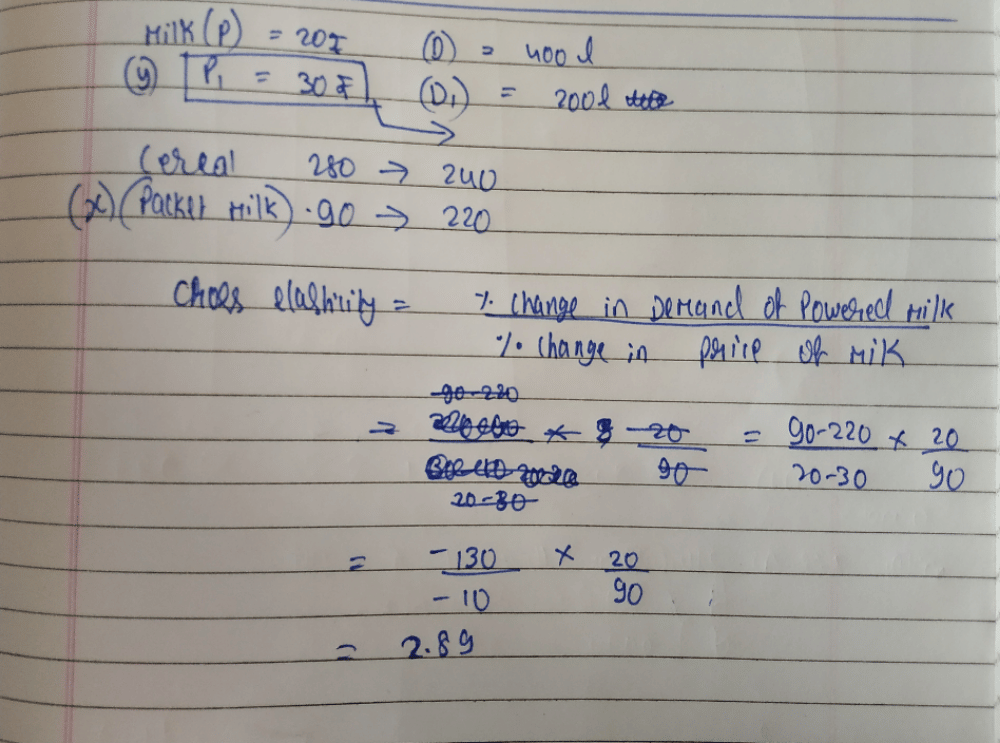 Milk (P) = 20₹ (D) = 400 l
(y) P₁ = 30 ₹ (D₁) = 200 l
Cereal 280 → 240
(x) (Packet Milk) · 90 → 220
Cross elasticity = % change in Demand of Powered Milk
% change in price of Milk
90-220
⇒ × 20 = 90-220 × 20
20-30 90 20-30 90
= -130 × 20
-10 90
= 2.89